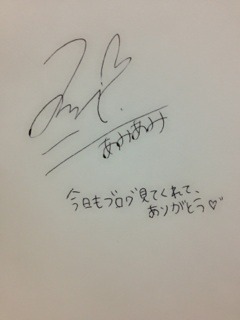 あみあみ
今日もブログ見てくれて、
ありがとう♡